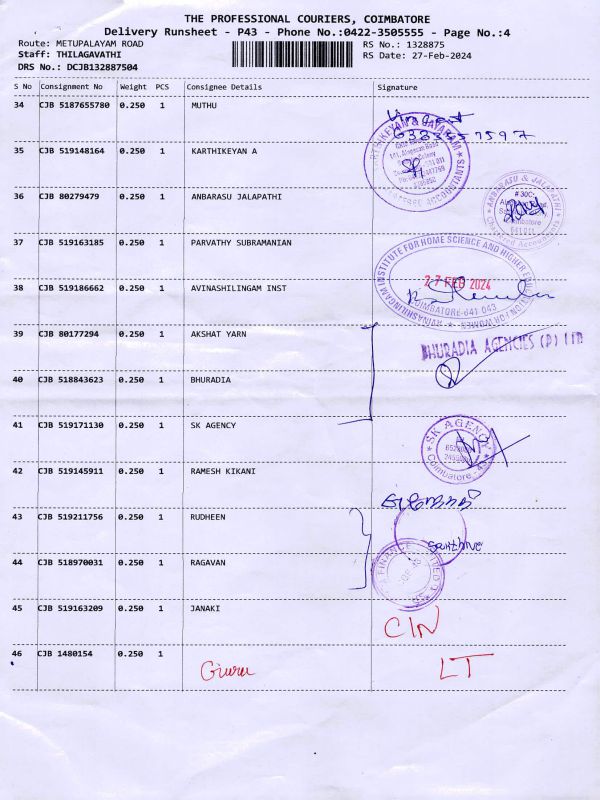 THE PROFESSIONAL COURIERS, COIMBATORE
Delivery Runsheet - P43 - Phone No.:0422-3505555 - Page No.:4
Route: METUPALAYAM ROAD RS No.: 1328875
Staff: THILAGAVATHI RS Date: 27-Feb-2024
DRS No.: DCJB132887504
S No Consignment No Weight PCS Consignee Details Signature
34 CJB 5187655780 0.250 1 MUTHU
35 CJB 519148164 0.250 1 KARTHIKEYAN A
36 CJB 80279479 0.250 1 ANBARASU JALAPATHI
37 CJB 519163185 0.250 1 PARVATHY SUBRAMANIAN
INSTITUTE FOR HOME SCIENCE AND HIGHER
27 FEB 2024
COIMBATORE-641 043
38 CJB 519186662 0.250 1 AVINASHILINGAM INST
39 CJB 80177294 0.250 1 AKSHAT YARN
BHURADIA AGENCIES (P) LTD
40 CJB 518843623 0.250 1 BHURADIA
41 CJB 519171130 0.250 1 SK AGENCY
SK AGENCY
Coimbatore
42 CJB 519145911 0.250 1 RAMESH KIKANI
43 CJB 519211756 0.250 1 RUDHEEN
44 CJB 518970031 0.250 1 RAGAVAN
FINANCE
45 CJB 519163209 0.250 1 JANAKI
CIN
46 CJB 1480154 0.250 1
Guru LT